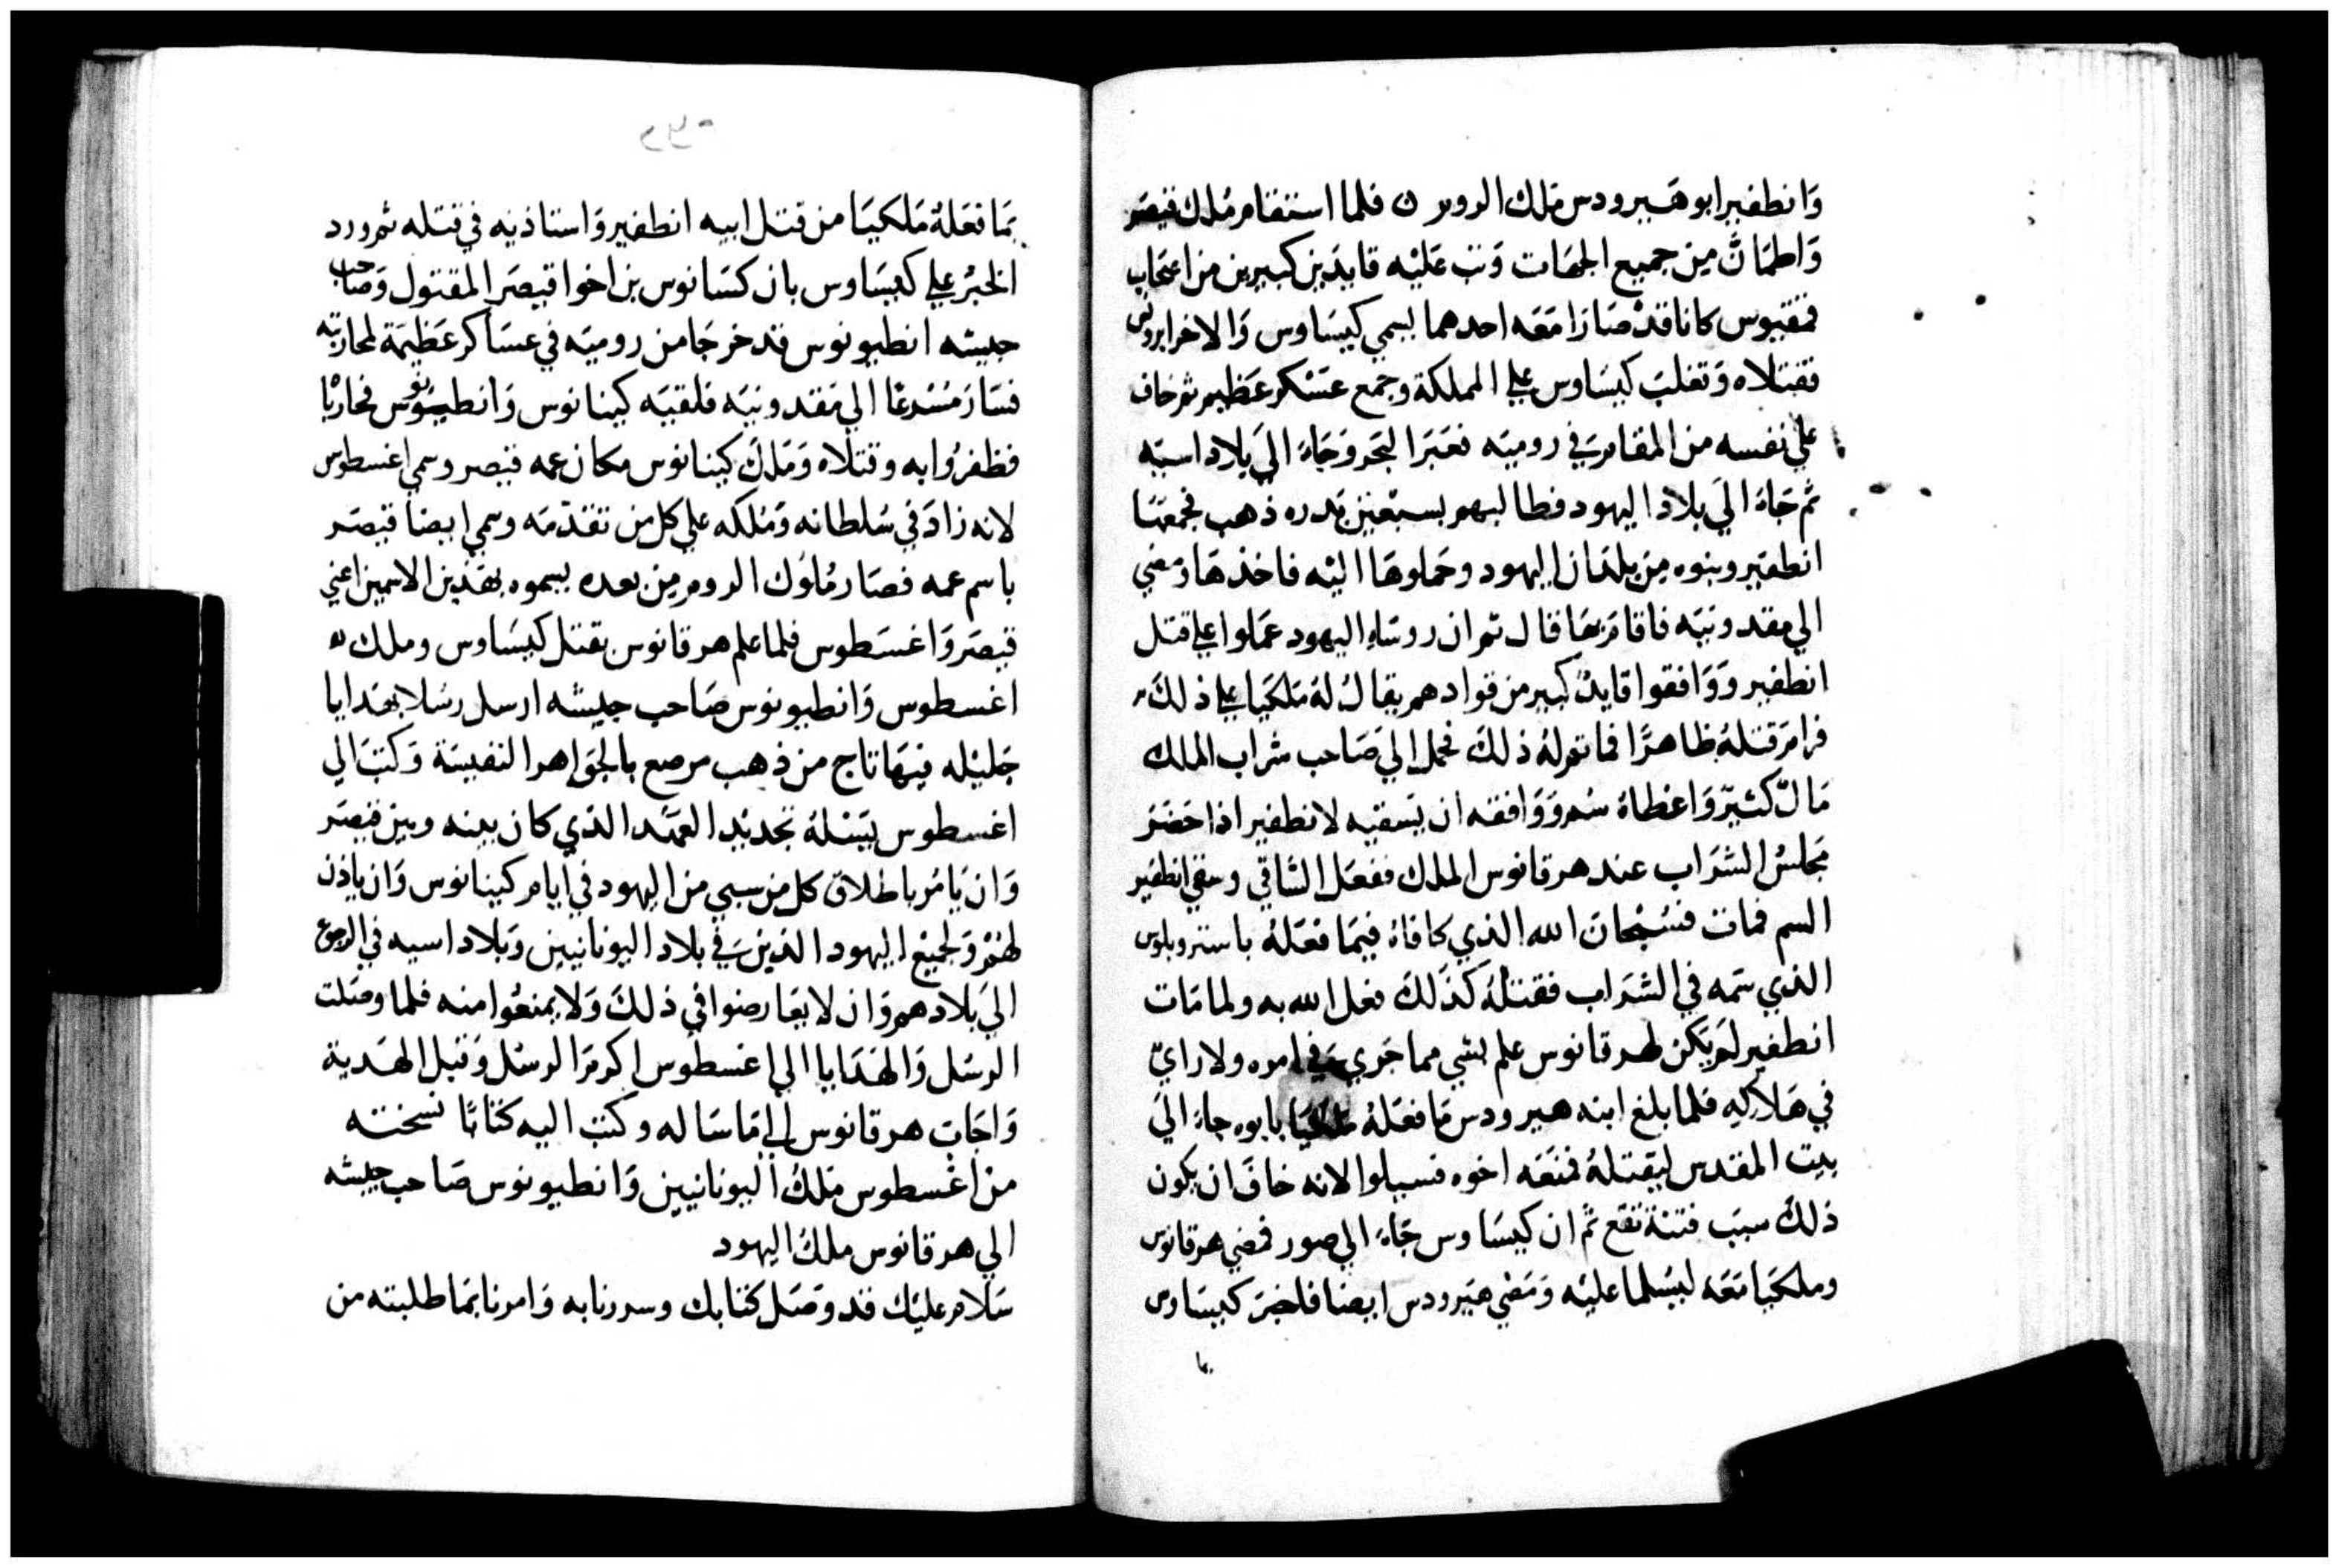 وَانطفير ابو هَيرودس مَلك الروم ن فلما استقام مُلك قيصَر
وَاطمَانَّ مِن جميع الجهَات وَثب عَليْه قايدَين كبيرين من اصحَاب
فمقيوس كانا قدْ صَارَا مَعَه احدهما يسمي كيسَاوس وَالاخر ابروتس
فقتلاه وَتغلبَ كيسَاوس علي المملكة وجمع عسْكر عَظيم ثم خاف
علي نفسه من المقام في روميَه فعَبَرَ البَحر وَجَاءَ الىَ بلاد اسيَه
ثم جَاءَ الىَ بلاد اليهود فطالبهم بسبْعين بَدره ذهب فجمعَهَا
انطفير وبنوه مِن بلدَان اليهود وحَملوهَا اليْه فاخذهَا وَمَضي
الي مقدونيَه فاقامَ بهَا قال ثم ان روسَاءِ اليهود عمَلوا علي قتل
انطفير وَوَافقوا قايدٌ كبير من قوادهم يقالُ لهُ مَلكيَا علي ذلكَ
فرامَ قتلهُ ظاهرًا فما تم لهُ ذلكَ فحمل الي صَاحب شراب الملك
مَالٌ كثيرٌ وَاعْطاهُ سُم وَوَافقه ان يَسقيه لانطفير اذا حَضَرَ
مَجلسُ الشرَاب عند هرقانوس الملك ففعَل السَّاقي وسَقي انطفير
السم فمات فسُبْحَانَ الله الذي كافاهُ فيمَا فعَلهُ باسترو بلوس
الذي سَمه في الشرَاب فقتلهُ كذَلكَ فعل الله به ولما مَات
انطفير لمَ يَكن لهرقانوس علم بشي مما جَري في امره ولا رايٌ
في هَلاكِهِ فلما بلغ ابنه هيرودس مَا فعَلهُ ملكيَا بابوه جاءَ الىَ
بيت المقدس ليَقتلهُ فمنَعَه اخوه فسيلوا لانه خافَ ان يكون
ذلكَ سببَ فتنة تقع ثمَ ان كيسَاوس جَاءَ الي صور فمضي هرقانوس
وملكيَا مَعَه ليسَلما عليْه وَمَضي هيَرودس ايضا فاخبرَ كيسَاوس
بما
بمَا فعَلهُ مَلكيَا من قتل ابيه انطفير وَاستاذنه في قتله ثم ورد
الخبرُ علي كيسَاوس بان كسَانوس بن اخوا قيصَر المقتول وَصَاحب
جيشه انطيونوس قد خرجَا من روميَه في عسَاكر عَظيمَة لمحاربته
فسَارَ مُسْرعًا الي مَقدونيَه فلقيَه كينانوس وَانطيونوس فحاربَا
فظفرُوا به وقتلاه وَمَلكَ كينانوس مكان عمه قيصر وسمي اغسطوس
لانه زادَ في سُلطانه وَمُلكه علي كل من تقدّمَه وسمي ايضا قيصَر
باسم عمه فصَار مُلوك الروم مِن بعده يسموه بهَذين الاسمين اعني
قيصَر وَاغسَطوس فلما علم هرقانوس بقتل كيسَاوس وملك
اغسطوس وَانطيونوس صَاحب جيشه ارسل رسُلا بهَدايا
جَليْله فيهَا تاج من ذهب مرصع بالجوَاهر النفيسَة وَكتبَ الي
اغسطوس يَسْلهُ تجديْد العهَد الذي كان بينه وبين قيصَر
وَان يَامُر باطلاق كل من سبي من اليهود في ايام كينانوس وَان ياذن
لهُمْ وَلجميْع اليهود الذين في بلاد اليونانيين وَبلاد اسيه في الرجوع
الىَ بلادهم وَان لا يعَارضوا في ذلكَ وَلا يمنعُوا منه فلما وصَلت
الرسُل وَالهَدَايا الي اغسطوس اكرمَ الرسُل وَقبل الهَدية
وَاجَاب هرقانوس الي مَا سَاله وكتب اليه كتابًا نسخته
منْ اغْسطوس مَلكُ اليونانيين وَانطيونوس صَاحب جيشه
الي هرقانوس ملكُ اليهود
سَلام عليَك قد وصَل كتابك وسررنا به وَامرنا بمَا طلبته من